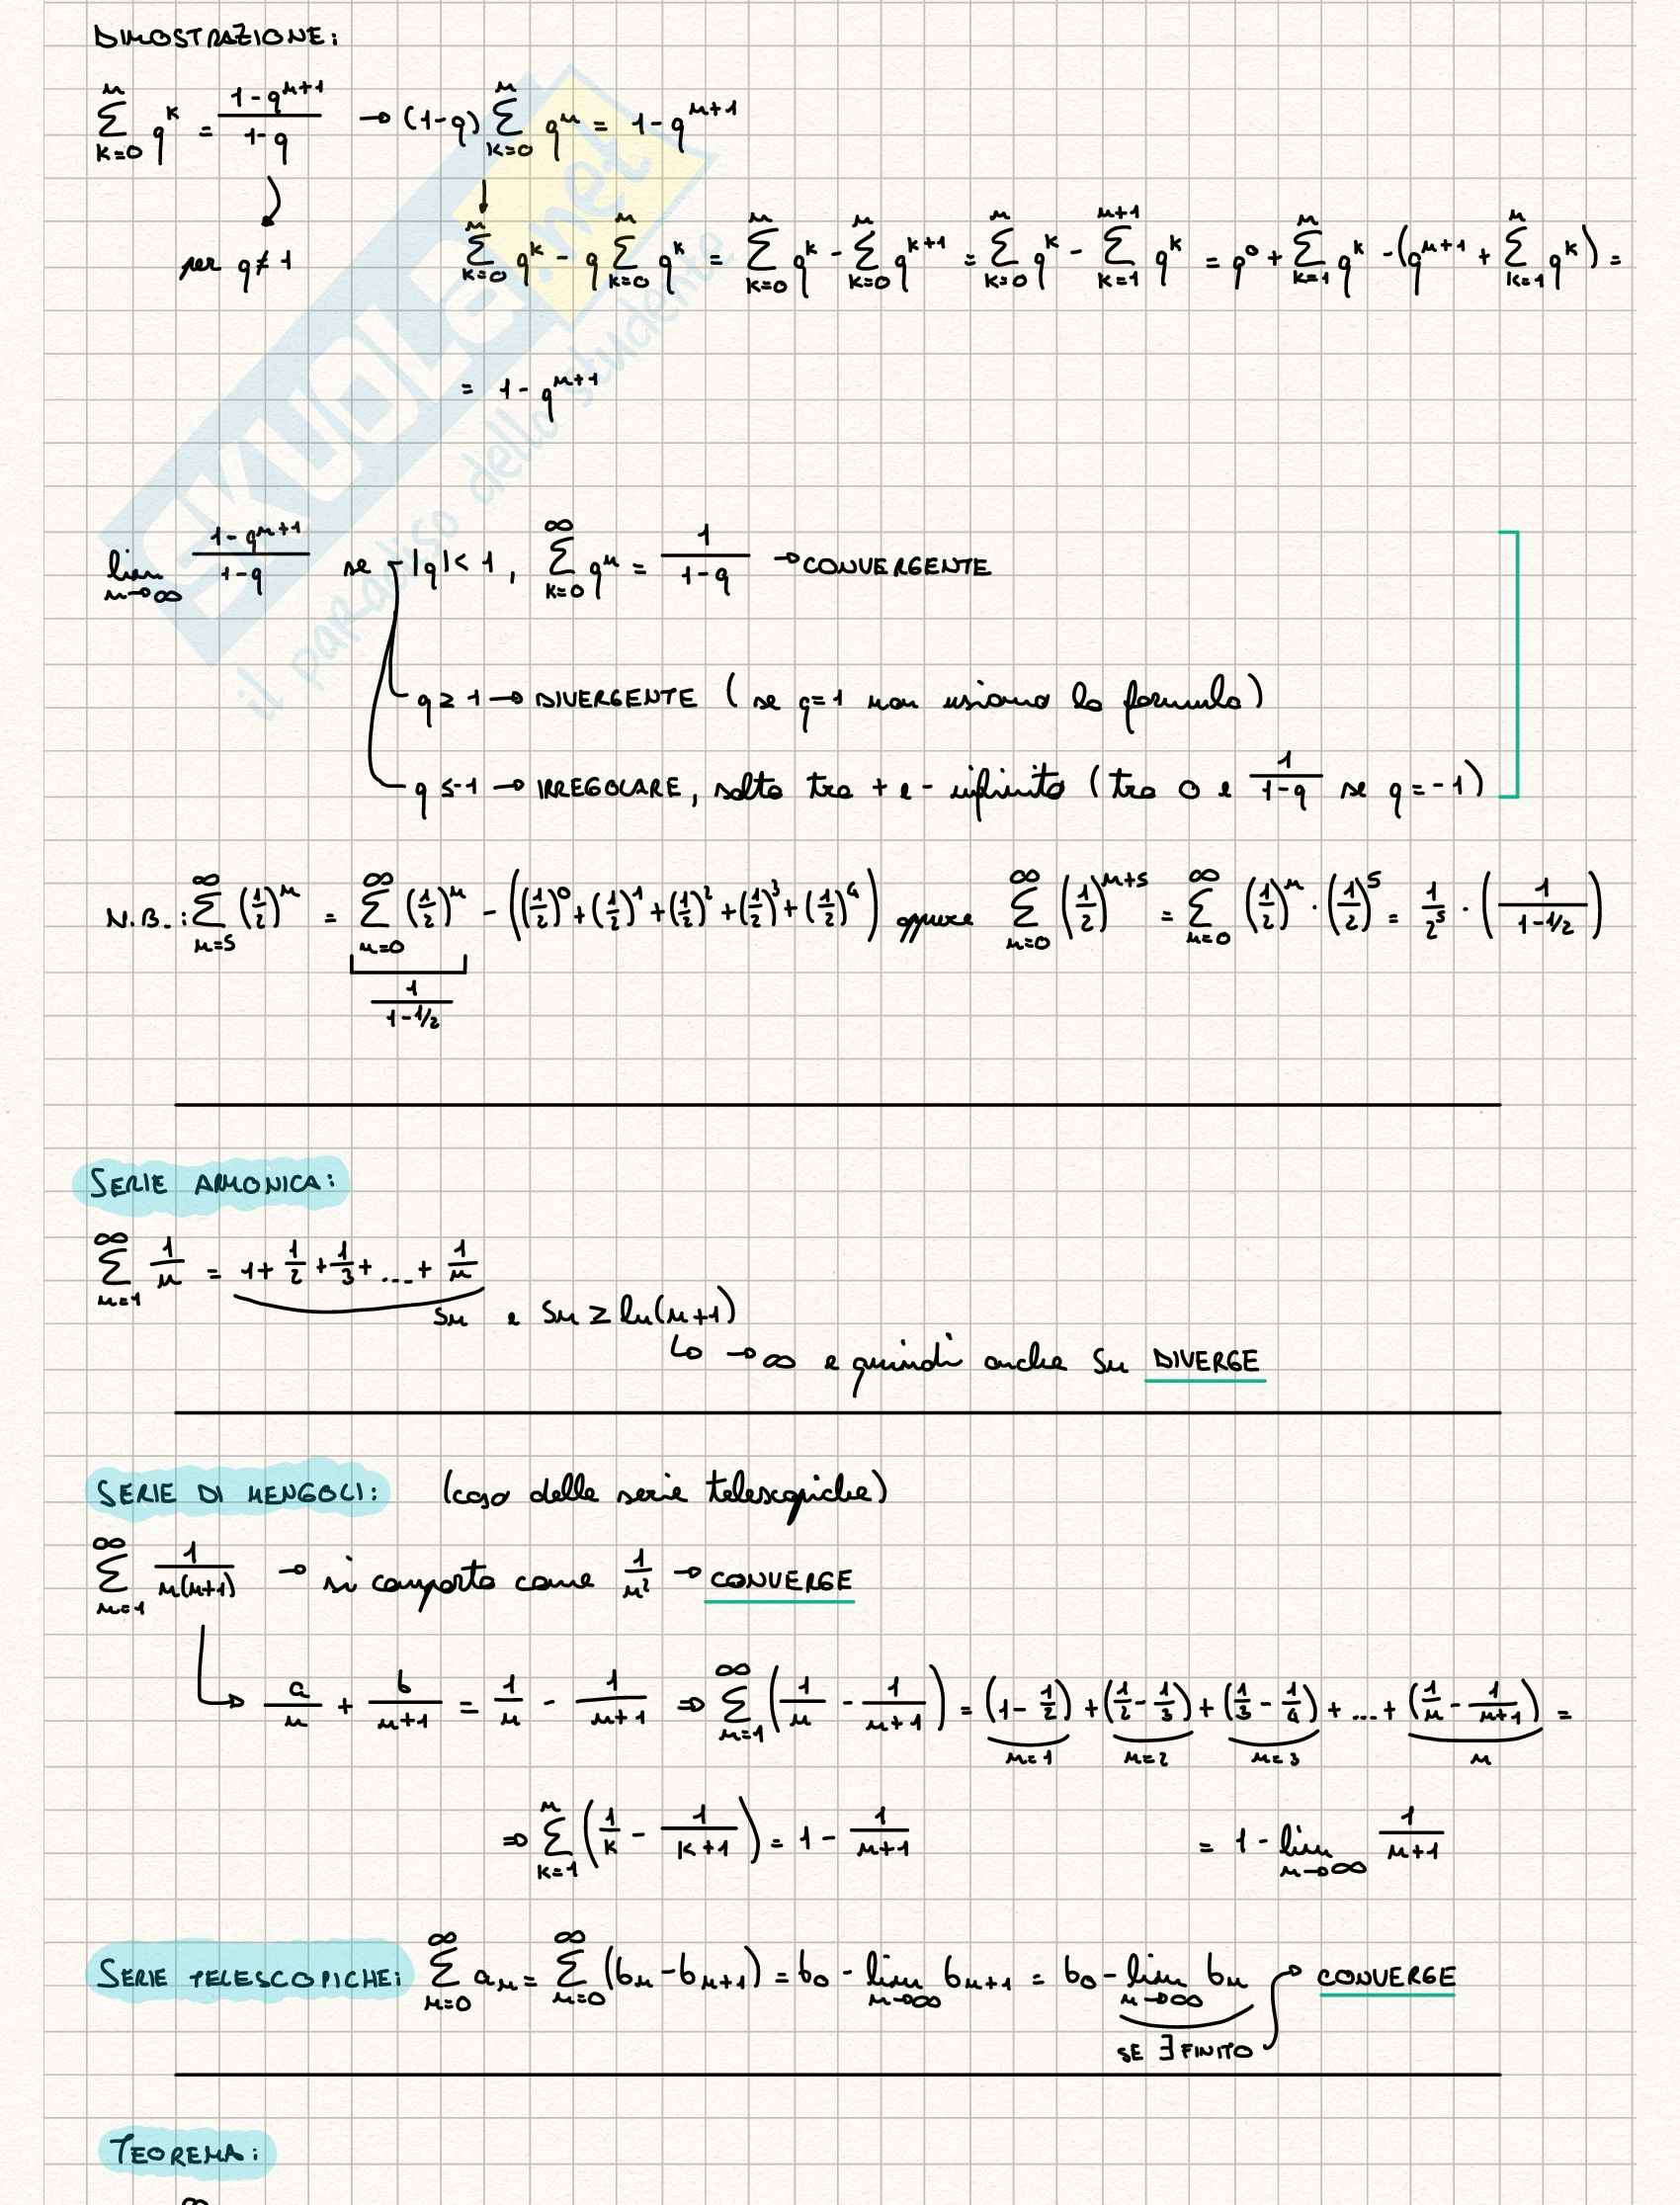 DIMOSTRAZIONE:
∑_{k=0}^{n} q^k = (1-q^{n+1})/(1-q) → (1-q) ∑_{k=0}^{n} q^n = 1-q^{n+1}
per q≠1
∑_{k=0}^{n} q^k - q ∑_{k=0}^{n} q^k = ∑_{k=0}^{n} q^k - ∑_{k=0}^{n} q^{k+1} = ∑_{k=0}^{n} q^k - ∑_{k=1}^{n+1} q^k = q^0 + ∑_{k=1}^{n} q^k - (q^{n+1} + ∑_{k=1}^{n} q^k) =
= 1 - q^{n+1}
SKUOLA.net
il paradiso dello studente
lim_{n→∞} (1-q^{n+1})/(1-q) se |q|<1, ∑_{k=0}^{∞} q^n = 1/(1-q) → CONVERGENTE
q≥1 → DIVERGENTE (se q=1 non usiamo la formula)
q≤-1 → IRREGOLARE, salta tra + e - infinito (tra 0 e 1/(1-q) se q=-1)
N.B.: ∑_{n=5}^{∞} (1/2)^n = ∑_{n=0}^{∞} (1/2)^n - ((1/2)^0 + (1/2)^1 + (1/2)^2 + (1/2)^3 + (1/2)^4) oppure ∑_{n=0}^{∞} (1/2)^{n+5} = ∑_{n=0}^{∞} (1/2)^n · (1/2)^5 = 1/2^5 · (1/(1-1/2))
1/(1-1/2)
SERIE ARMONICA:
∑_{n=1}^{∞} 1/n = 1 + 1/2 + 1/3 + .... + 1/n
Sn e Sn ≥ ln(n+1)
↳ → ∞ e quindi anche Sn DIVERGE
SERIE DI MENGOLI: (caso delle serie telescopiche)
∑_{n=1}^{∞} 1/(n(n+1)) → si comporta come 1/n² → CONVERGE
a/n + b/(n+1) = 1/n - 1/(n+1) ⇒ ∑_{n=1}^{∞} (1/n - 1/(n+1)) = (1 - 1/2) + (1/2 - 1/3) + (1/3 - 1/4) + ... + (1/n - 1/(n+1)) =
n=1 n=2 n=3 n
⇒ ∑_{k=1}^{n} (1/k - 1/(k+1)) = 1 - 1/(n+1) = 1 - lim_{n→∞} 1/(n+1)
SERIE TELESCOPICHE: ∑_{n=0}^{∞} a_n = ∑_{n=0}^{∞} (b_n - b_{n+1}) = b_0 - lim_{n→∞} b_{n+1} = b_0 - lim_{n→∞} b_n → CONVERGE
SE ∃ FINITO
TEOREMA: